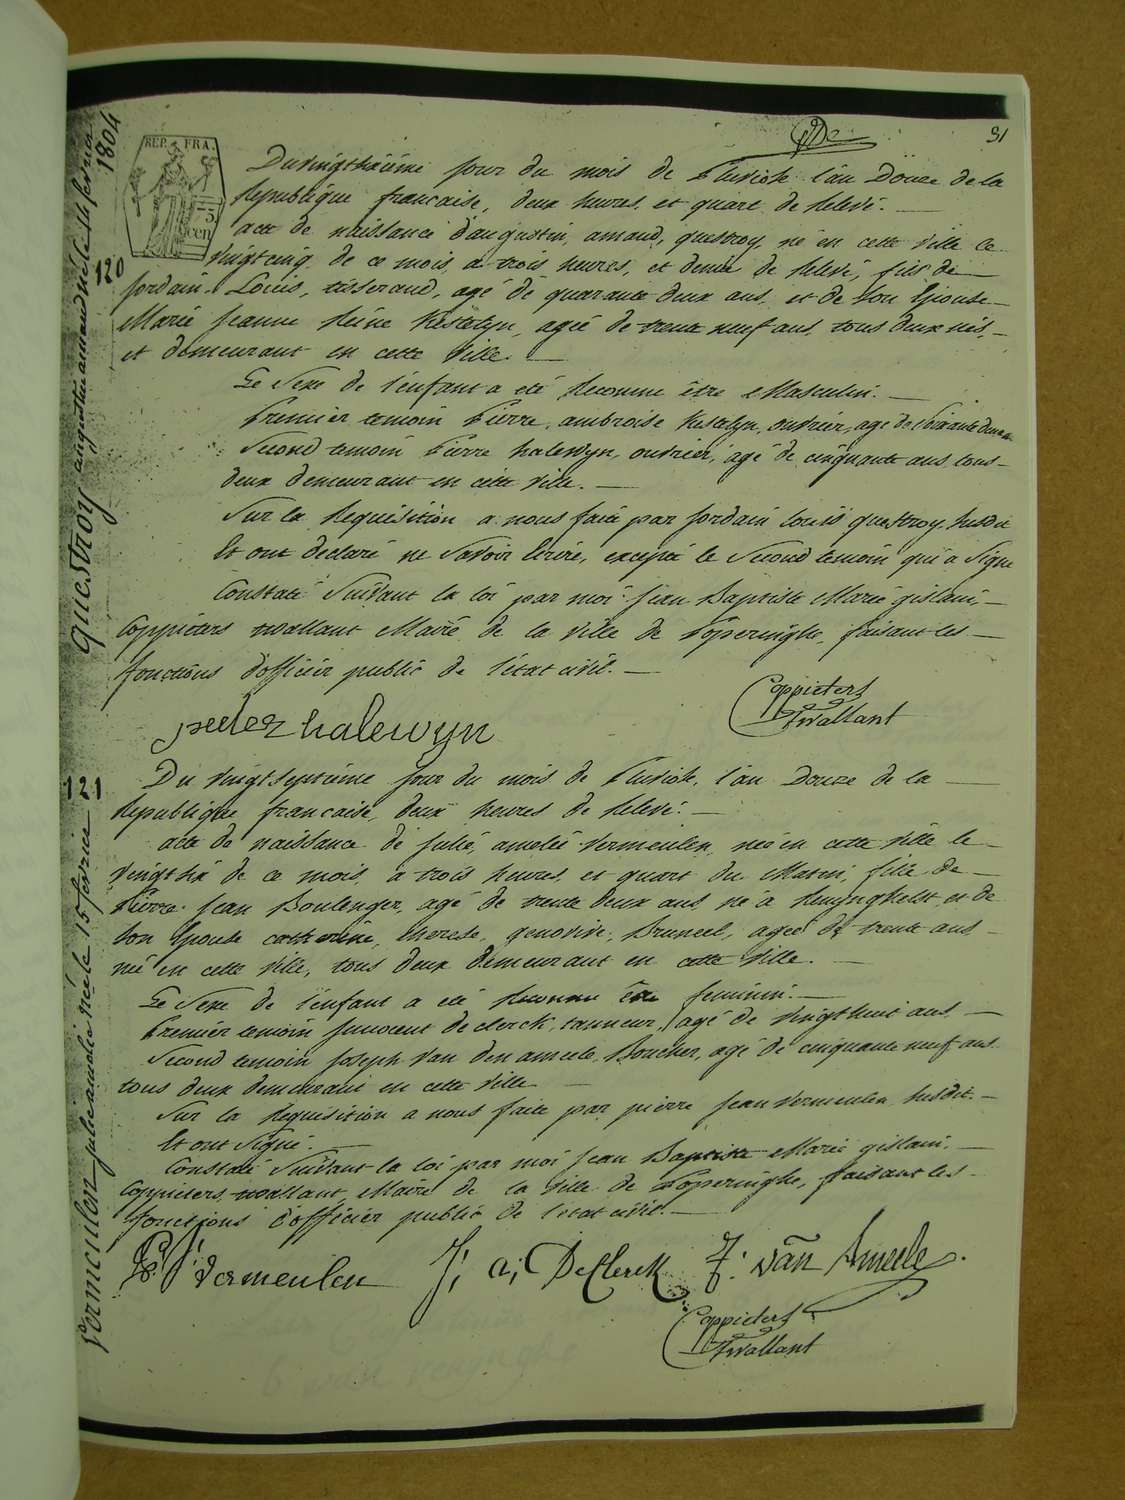 31
1804
REP. FRA.
5
cen
Du vingtsixieme jour du mois de Pluviose l'an Douze de la
Republique francaise, deux heures et quart de Relevé. —
acte de naissance d'augustin, amand, questroy né en cette ville le
vingtcinq de ce mois a trois heures, et demie de Relevé, fils de
Jordain Louis, tisserand, agé de quarante deux ans et de son Epouse
Marie Jeanne Reine Kestelyn, agée de trente neuf ans tous deux nés,
et demeurant en cette ville. —
120
Le Sexe de l'enfant a eté Reconnu être Masculin. —
Premier temoin Pierre, ambroise Kestelyn, ouvrier, agé de soixante deux ans
Second temoin Pierre halewyn, ouvrier, agé de cinquante ans tous
deux demeurant en cette ville. —
Sur la Requisition a nous faite par Jordain louis questroy susdit
Et ont declaré ne Savoir Ecrire, excepté le Second temoin qui a Signé
Constaté Suivant la loi par moi Jean Baptiste Marie gislain,
Coppieters wallant Maire de la ville de Poperinghe, faisant les
fonctions d'officier public de l'état civil. —
Coppieters
Twallant
peeter halewyn
questroy augustin amand né le 14 fevrier
121
Du vingtseptieme jour du mois de Pluviose, l'an Douze de la
Republique francaise, deux heures de Relevé. —
acte de naissance de julie, amelie vermeulen, née en cette ville le
vingtsix de ce mois a trois heures et quart du Matin, fille de
Pierre Jean Boulenger, agé de trente deux ans né à Reninghelst et de
son Epouse catherine, therese, genovive, Bruneel, agée de trente ans
née en cette ville, tous deux demeurant en cette ville. —
Le Sexe de l'enfant a eté Reconnu être feminin. —
Premier temoin Innocent de clerck, tanneur, agé de vingthuit ans —
Second temoin Joseph Van den ameele, Boucher, agé de cinquante neuf ans
tous deux demeurant en cette ville —
Sur la Requisition a nous faite par pierre Jean vermeulen susdit. —
Et ont Signé. —
Constaté Suivant la loi par moi Jean Baptiste Marie gislain,
Coppieters, wallant, Maire de la ville de Poperinghe, faisant les
fonctions d'officier public de l'etat civil. —
vermeulen julie amelie née le 15 fevrier
P. J. Vermeulen J; a; DeClerck J: van Ameele.
Coppieters
Twallant